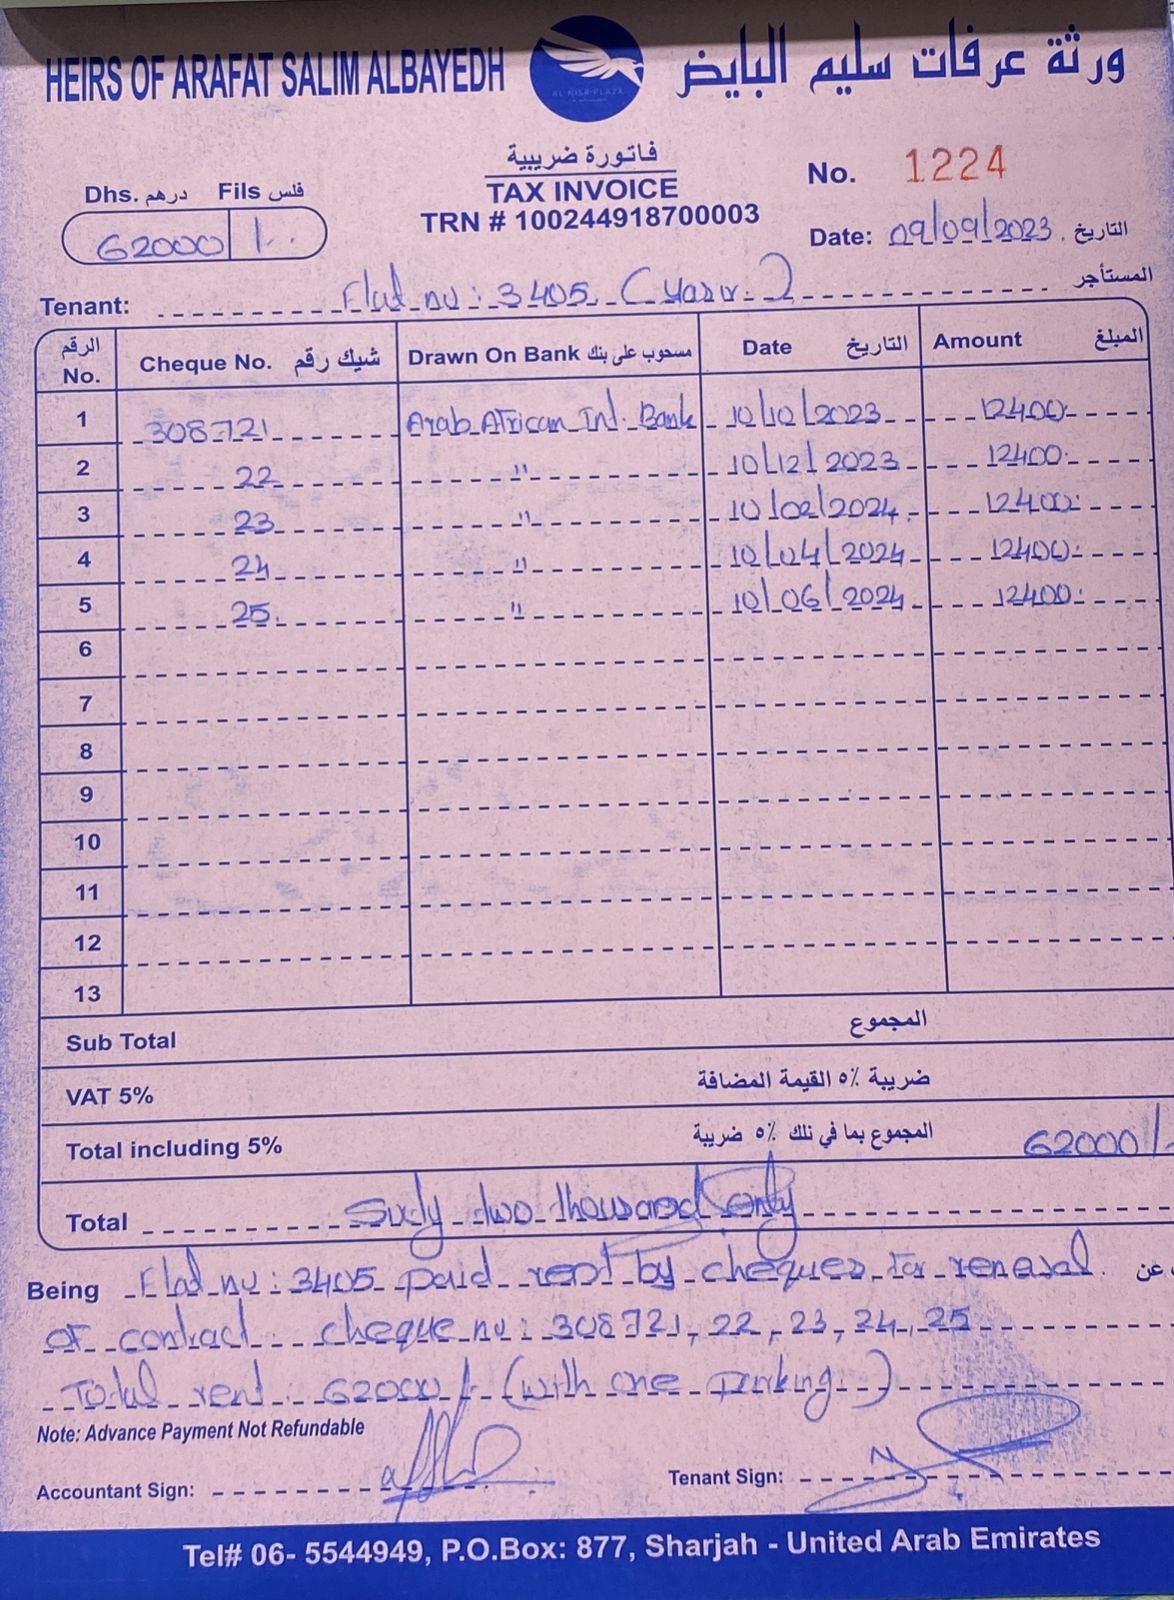 HEIRS OF ARAFAT SALIM ALBAYEDH
ورثة عرفات سليم البايض
AL NISR PLAZA
فاتورة ضريبية
TAX INVOICE
TRN # 100244918700003
No. 1224
Dhs. درهم Fils فلس
62000 / ..
Date: 09/09/2023 التاريخ
Tenant: Flat no: 3405 (Yasir) المستأجر
الرقم No. Cheque No. شيك رقم Drawn On Bank مسحوب على بنك Date التاريخ Amount المبلغ
1 308721 Arab African Int. Bank 10/10/2023 12400
2 22 " 10/12/2023 12400
3 23 " 10/02/2024 12400
4 24 " 10/04/2024 12400
5 25 " 10/06/2024 12400
6
7
8
9
10
11
12
13
Sub Total المجموع
VAT 5% ضريبة ٥٪ القيمة المضافة
Total including 5% المجموع بما في تلك ٥٪ ضريبة 62000/-
Total Sixty two thousand only
Being Flat no: 3405 paid rent by cheques for renewal عن
of contract. cheque no: 308721, 22, 23, 24, 25
Total rent: 62000/- (with one parking.)
Note: Advance Payment Not Refundable
Accountant Sign:
Tenant Sign:
Tel# 06- 5544949, P.O.Box: 877, Sharjah - United Arab Emirates